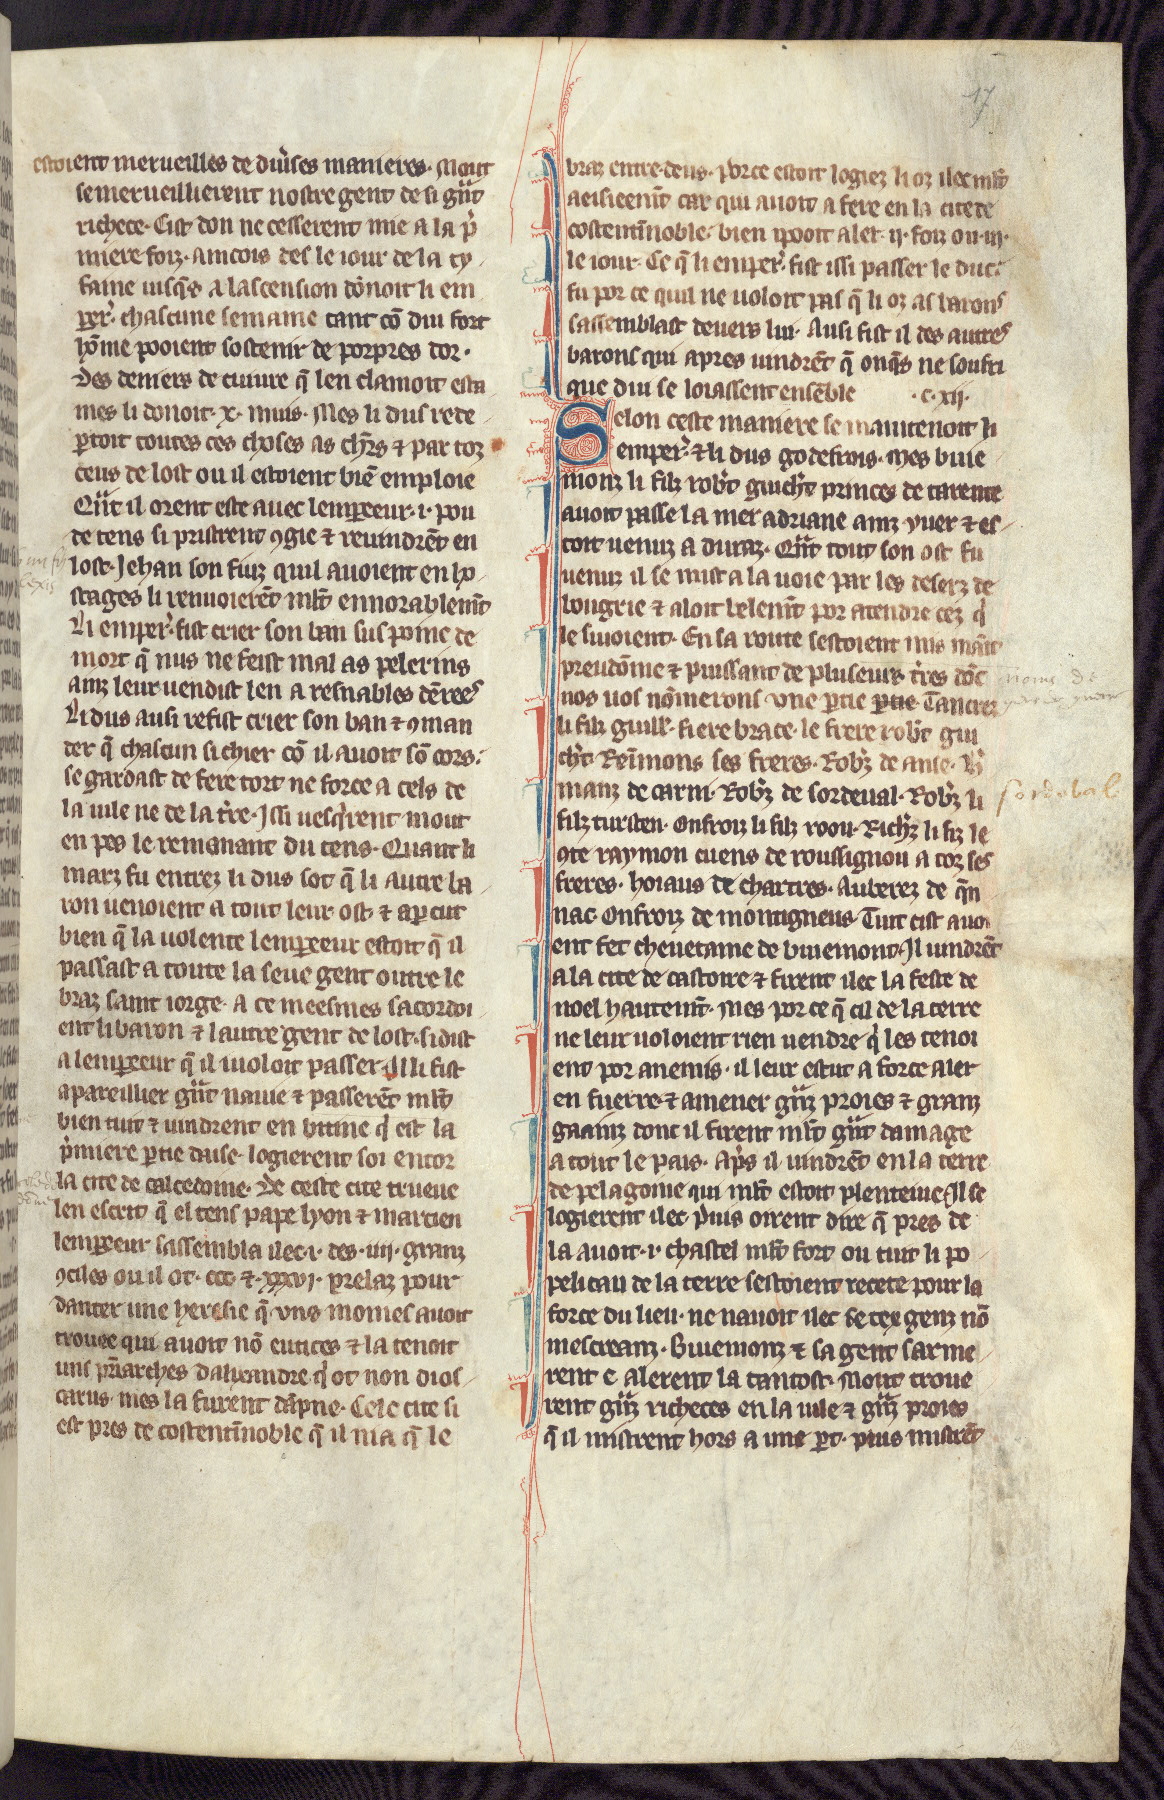 17
estoient merueilles de diuˀses manieres. Mout
semerueillierent nostre gent de si gñt
richece. Cist don ne cesserent mie a la pˀ
miere foiz. Aincois des le iour de la ty
faine iusqˀs a lascension dōnoit li em
perˀ. chascune semaine tant cō diu fort
hōme pooient sostenir de porpres dor.
Des deniers de cuiure q̄ len clamoit esta
mes li donoit .x. muis. Mes li dus rede
ꝑtoit toutes ces choses as chˀrs ⁊ par toz
ceus de lost ou il estoient biē emploie
Qñt il orent este auec lempereeur .i. pou
de tens si pristrent ꝯgie ⁊ reuindrēt en
lost. Jehan son fiuz quil auoient en ho
stages li renuoierēt ml̄t ennorablemt̄
Li emperˀ. fist crier son ban sus poine de
mort q̄ nus ne feist mal as pelerins
ainz leur uendist len a resnables dērees
Li dus ausi refist crier son ban ⁊ ꝯman
der q̄ chascun si chier cō il auoit sō cors.
se gardast de fere tort ne force a cels de
la uile ne de la tˀre. Issi uesqˀrent mout
en pes le remanant du tens. Quant li
marz fu entrez li dus sot q̄ li autre ba
ron uenoient a tout leur ost ⁊ aꝑcut
bien q̄ la uolente lempereeur estoit q̄ il
passast a toute la seue gent outre le
braz saint iorge. A ce meesmes sacordoi
ent li baron ⁊ lautre gent de lost. si dist
a lempereeur q̄ il uoloit passer. Il li fist
apareillier gñt nauie ⁊ passerēt ml̄t
bien tuit ⁊ uindrent en bitine qˀ est la
pˀmiere ꝑtie daise. logierent soi entor
la cite de calcedoine. De ceste cite trueue
len escrit q̄ el tens pape lyon ⁊ marcien
lempereeur sassembla ilec .i. des .iiii. granz
ꝯciles ou il ot .ccc. ⁊ .xxxvi. prelaz pour
danter une heresie q̄ vns moines auoit
trouee qui auoit nō eutices ⁊ la tenoit
uns pˀarches dalixandre qˀ ot non dios
carus. mes la furent dāpne. Cele cite si
est pres de costentīnoble q̄ il nia q̄ le
braz entre deus. Por ce estoit logiez li oz ilec ml̄t
aeisieemt̄ car qui auoit a fere en la cite de
costentīnoble bien i pooit aler .ii. foiz ou .iii.
le iour. Ce q̄ li emperˀ. fist issi passer le duc.
fu por ce quil ne uoloit pas q̄ li oz as barons
sassemblast deuers lui. Ausi fist il des autres
barons qui apres uindrēt q̄ onqˀs ne soufri
que diu se loiassent ensēble .c. xii.
Selon ceste maniere se maintenoit li
emperˀ. ⁊ li dus godefrois. Mes buie
monz li filz robˀt guichˀt princes de tarente
auoit passe la mer adriane ainz yuer ⁊ es
toit uenuz a duraz. Qñt tout son ost fu
uenuz il se mist a la uoie par les deserz de
bougrie ⁊ aloit belemt̄ por atendre cez qˀ
le siuoient. En sa route sestoient mis māit
preudōme ⁊ puissant de pluseurs tˀres dōt
nos uos nōmerons vne ꝑtie ꝑtie. Tancrez
li filz guillˀ. fierebrace. le frere robˀt gui
chˀt. Reimons ses freres. Robˀz de anse. hˀ
manz de carni. Robˀz de sordeual. Robˀz li
filz tursten. Onfroiz li filz roou. Richˀz li fiz le
ꝯte raymon cuens de roussignou a toz ses
freres. hoiaus de chartres. Auberez de q̄n
nac. Onfroiz de montigneus. Tuit cist auoi
ent fet cheuetaine de buiemont. Il uindrēt
a la cite de castoire ⁊ firent ilec la feste de
noel hautemt̄. Mes por ce q̄ cil de la terre
ne leur uoloient rien uendre qˀ les tenoi
ent por anemis. il leur estut a force aler
en fuerre ⁊ amener gñz proies ⁊ granz
gaainz dont il firent ml̄t gñt damage
a tout le pais. Apˀs il uindrēt en la terre
de pelagonie qui ml̄t estoit plenteiue. Il se
logierent ilec. Puis oirent dire q̄ pres de
la auoit .i. chastel ml̄t fort ou tuit li po
peli cau de la terre sestoient recete pour la
force du lieu. ne nauoit ilec se tex genz nō
mescreanz. Buiemonz ⁊ sa gent sarme
rent e alerent la tantost. Mout troue
rent gñz richeces en la uile ⁊ gñz proies
q̄ il mistrent hors a une ꝑt. puis mistrēt
noms de
sordebal